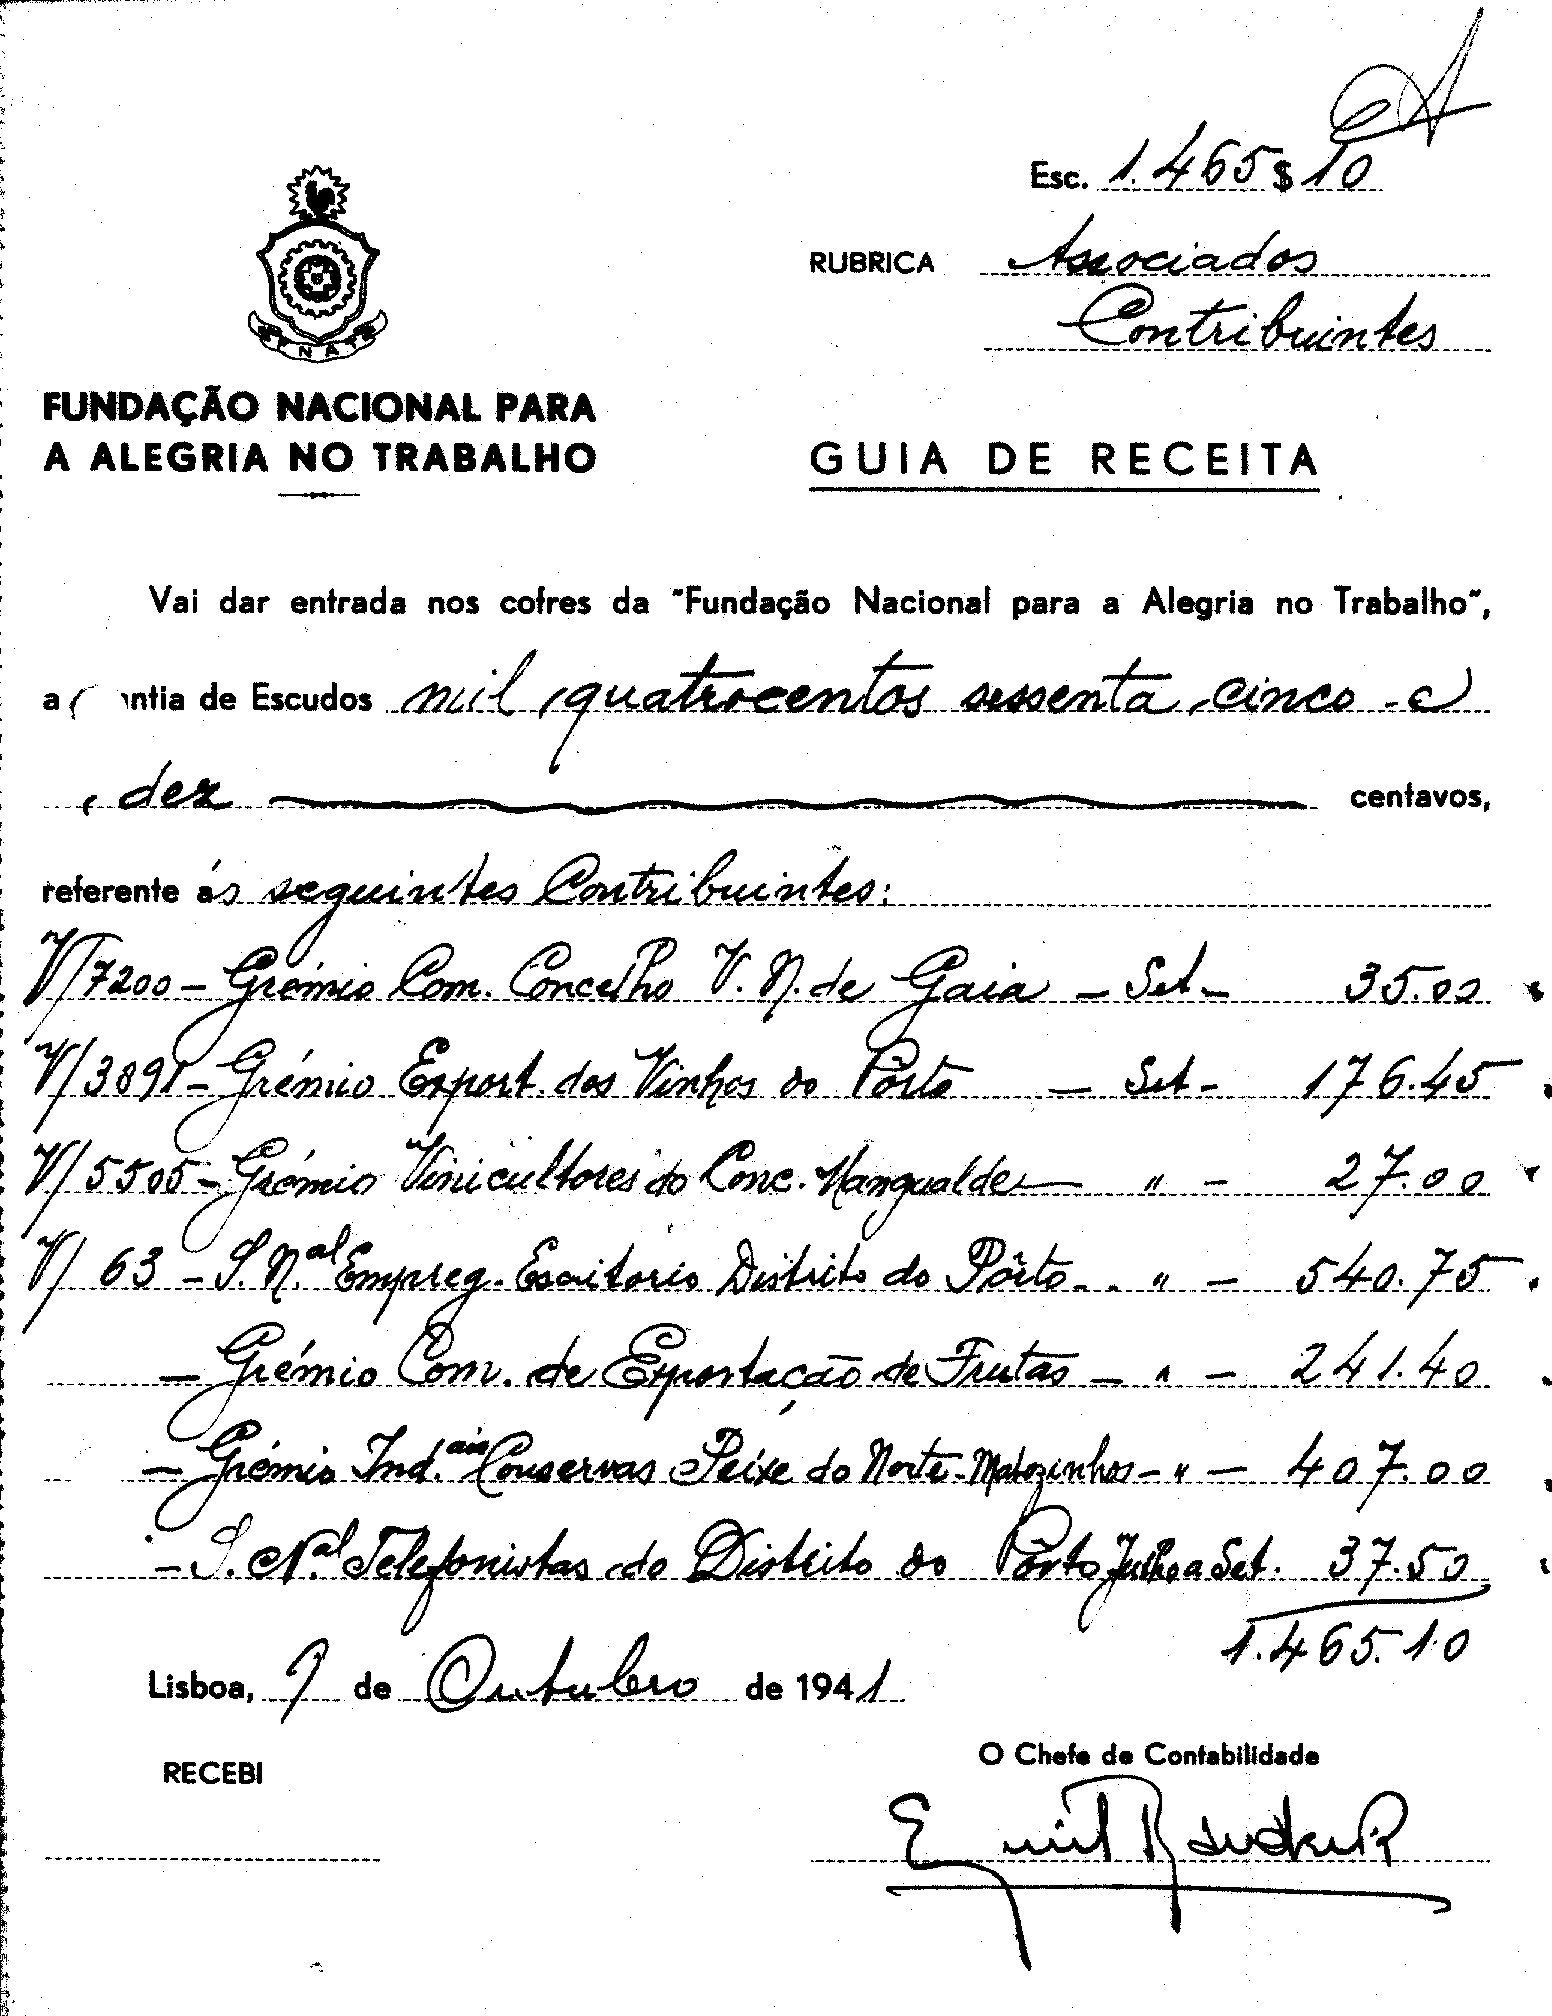 Esc. 1.465$10
RUBRICA Associados
Contribuintes
FENAT
FUNDAÇÃO NACIONAL PARA
A ALEGRIA NO TRABALHO
GUIA DE RECEITA
Vai dar entrada nos cofres da "Fundação Nacional para a Alegria no Trabalho",
a ntia de Escudos mil quatrocentos sessenta cinco e
dez centavos,
referente ás seguintes Contribuintes:
V/7200 - Grémio Com. Concelho V. N. de Gaia - Set - 35.00
V/3891 - Grémio Export. dos Vinhos do Pôrto - Set - 176.45
V/5505 - Grémio Vinicultores do Conc. Mangualde - " - 27.00
V/ 63 - S. N.al Empreg. Escritorio Distrito do Pôrto - " - 540.75
- Grémio Com. de Exportação de Frutas - " - 241.40
- Grémio Ind.ais Conservas Peixe do Norte - Matozinhos - " - 407.00
- S. N.al Telefonistas do Distrito do Pôrto Julho a Set. 37.50
1.465.10
Lisboa, 9 de Outubro de 1941
O Chefe de Contabilidade
RECEBI